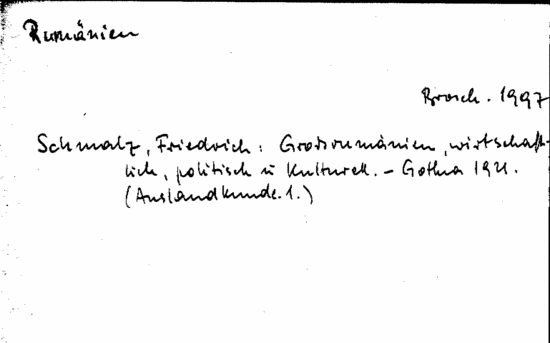 Rumänien
Brosch. 1997
Schmalz, Friedrich: Großrumänien, wirtschaft-
lich, politisch u kulturell. - Gotha 1921.
(Auslandkunde. 1.)